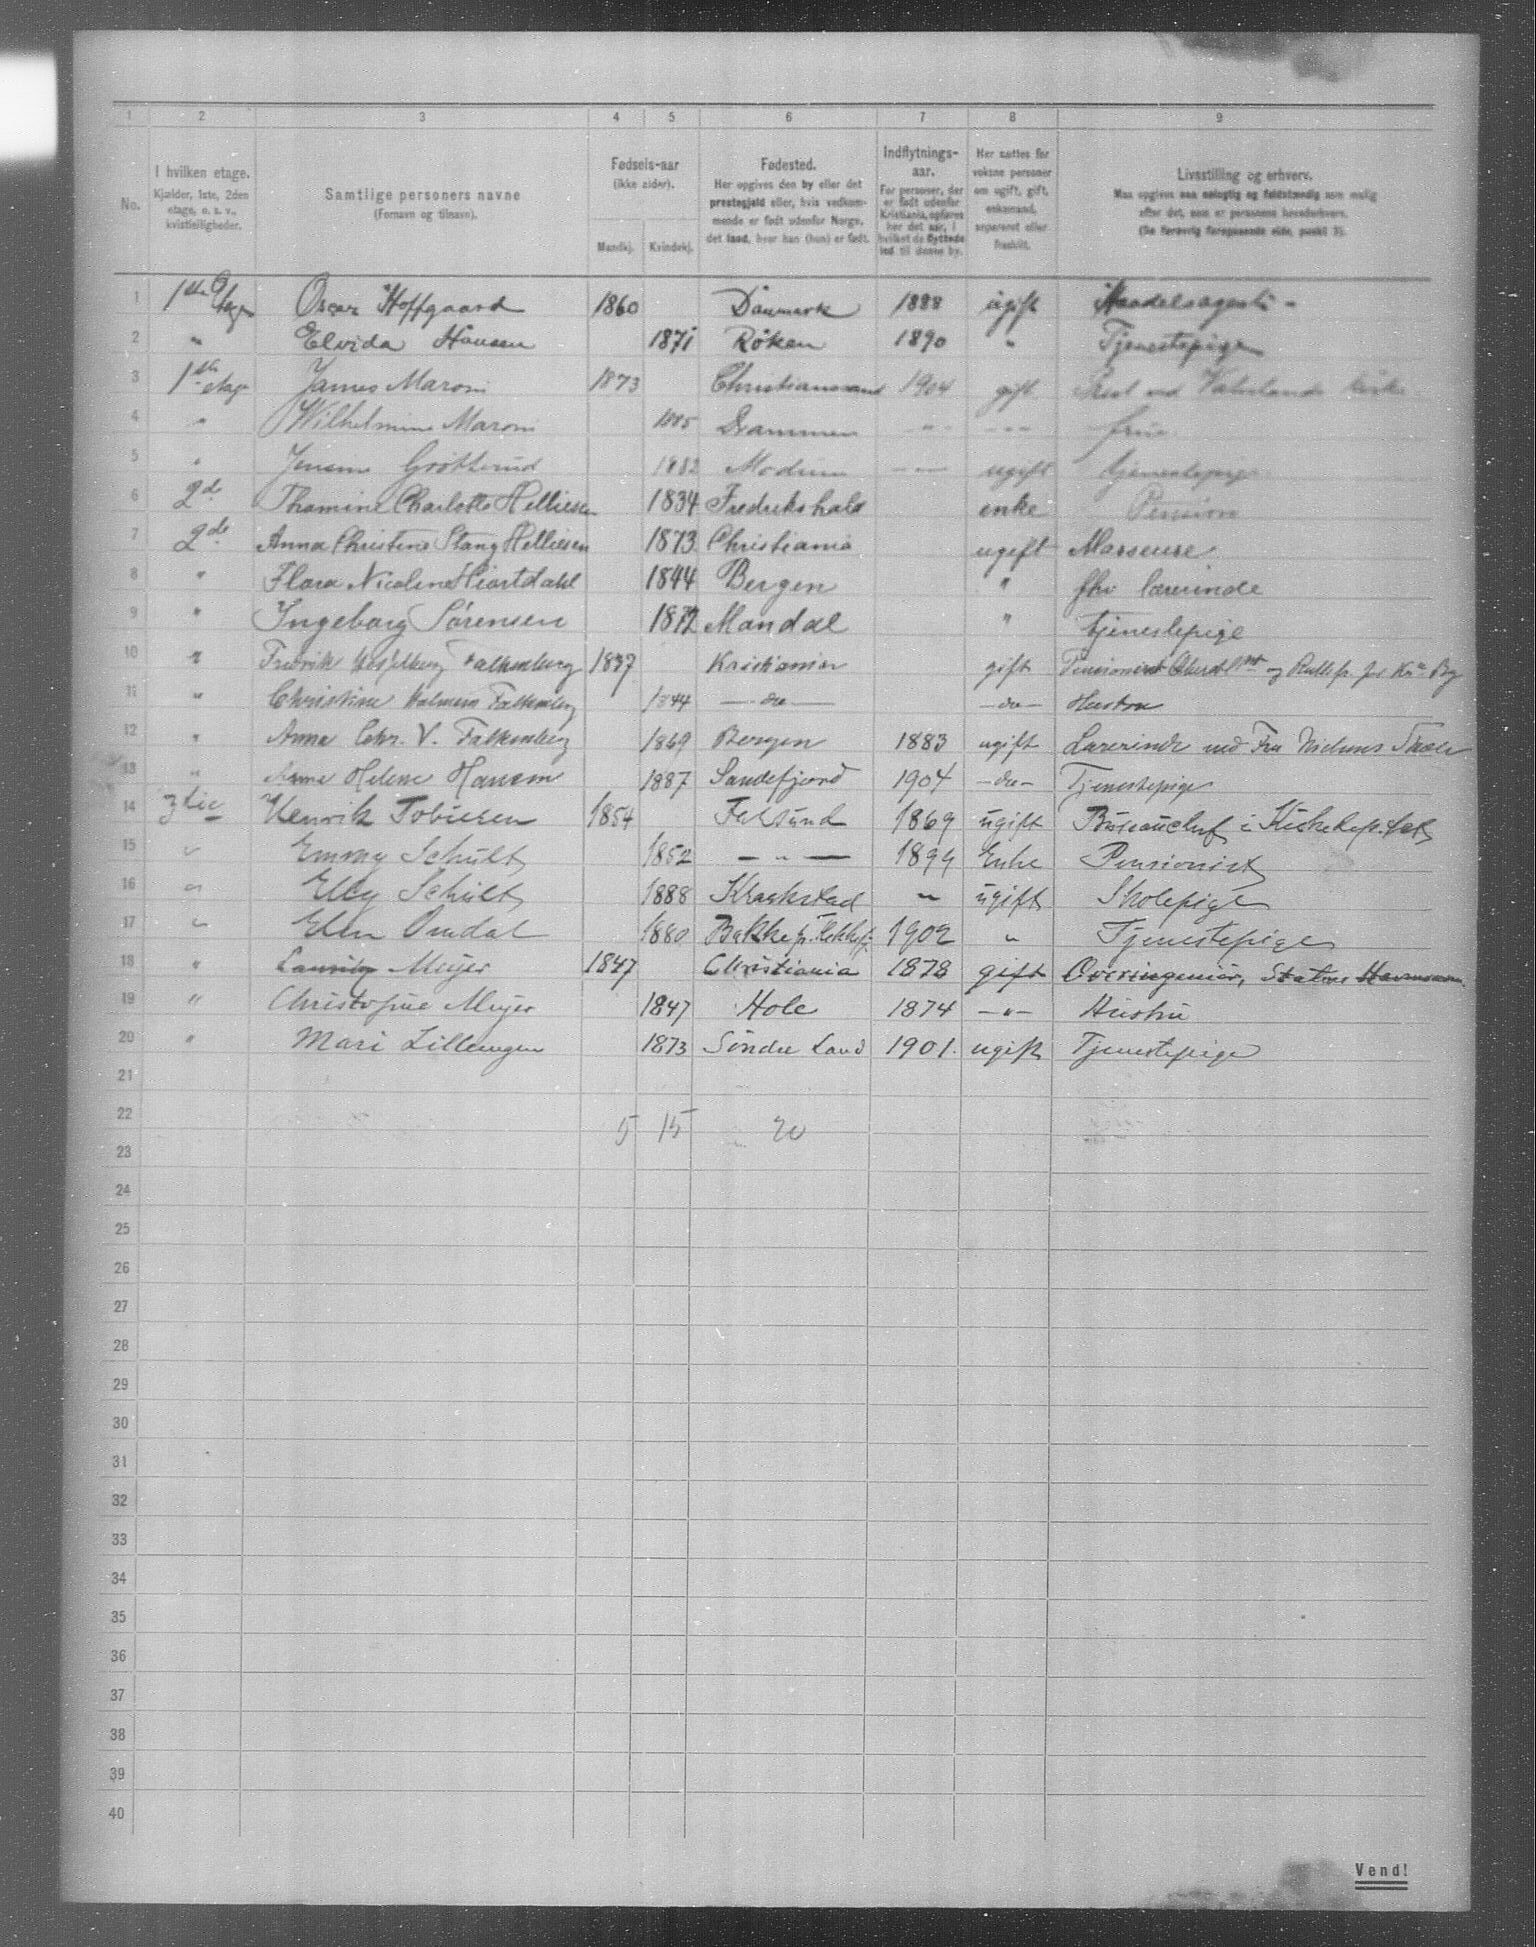 1 2 3 4 5 6 7 8 9
No.
I hvilken etage.
Kjælder, 1ste, 2den
etage, o. s. v.,
kvistleiligheder.
Samtlige personers navne
(Fornavn og tilnavn).
Fødsels-aar
(ikke alder).
Mandkj. Kvindekj.
Fødested.
Her opgives den by eller det
prestegjeld eller, hvis vedkom-
mende er født udenfor Norge,
det land, hvor han (hun) er født.
Indflytnings-
aar.
For personer, der
er født udenfor
Kristiania, opføres
her det aar, i
hvilket de flyttede
ind til denne by.
Her sættes for
voksne personer
om ugift, gift,
enkemand,
separeret eller
fraskilt.
Livsstilling og erhverv.
Maa opgives saa nøiagtig og fuldstændig som mulig
efter det, som er personens hovederhverv.
(Se forøvrig foregaaende side, punkt 3).
1 1ste Etage Oscar Hoffgaard 1860 Danmark 1888 ugift Handelsagent
2 " Elvida Hansen 1871 Røken 1890 " Tjenestepige
3 1ste etage James Maroni 1873 Christianssand 1904 gift Prest ved Vaterlands kirke
4 " Wilhelmine Maroni Drammen - " - - " - frue
5 " Grøtterud 1882 Modum - " - ugift tjenestepige
6 2de Thamine Charlotte Helliesen 1834 Fredrikshald enke Pension
7 2de Anna Christine Stang Helliesen 1873 Christiania ugift Masseuse
8 " Flora Nicoline Hiortdahl 1844 Bergen " fhv lærerinde
9 " Ingeborg Sørensen 1872 Mandal " tjenestepige
10 " Fredrik Falkenberg 1837 Kristiania gift Pensioneret og for Kra By
11 " Christine Falkenberg 1844 - do - - do - Hustru
12 " Anna Chr. V. Falkenberg 1869 Bergen 1883 ugift Lærerinde ved Frk Nielsens Skole
13 " Anne Helene Hansen 1887 Sandefjord 1904 - do - Tjenestepige
14 3die Henrik Tobiesen 1854 Farsund 1869 ugift Bureauchef i Kirkedep.tet
15 " Emmy Schult 1852 - " - 1899 Enke Pensionist
16 " Elly Schult 1888 Kraakstad " ugift Skolepige
17 " Elen Omdal 1880 Bakke p. Flekkefj. 1902 " Tjenestepige
18 " Lauritz Meijer 1847 Christiania 1878 gift Overingeniør, Statens Havnevæsen
19 " Christofine Meijer 1847 Hole 1874 - " - Hustru
20 " Mari Lillengen 1873 Søndre Land 1901. ugift Tjenestepige
21
22 5 15 20
23
24
25
26
27
28
29
30
31
32
33
34
35
36
37
38
39
40
Vend!